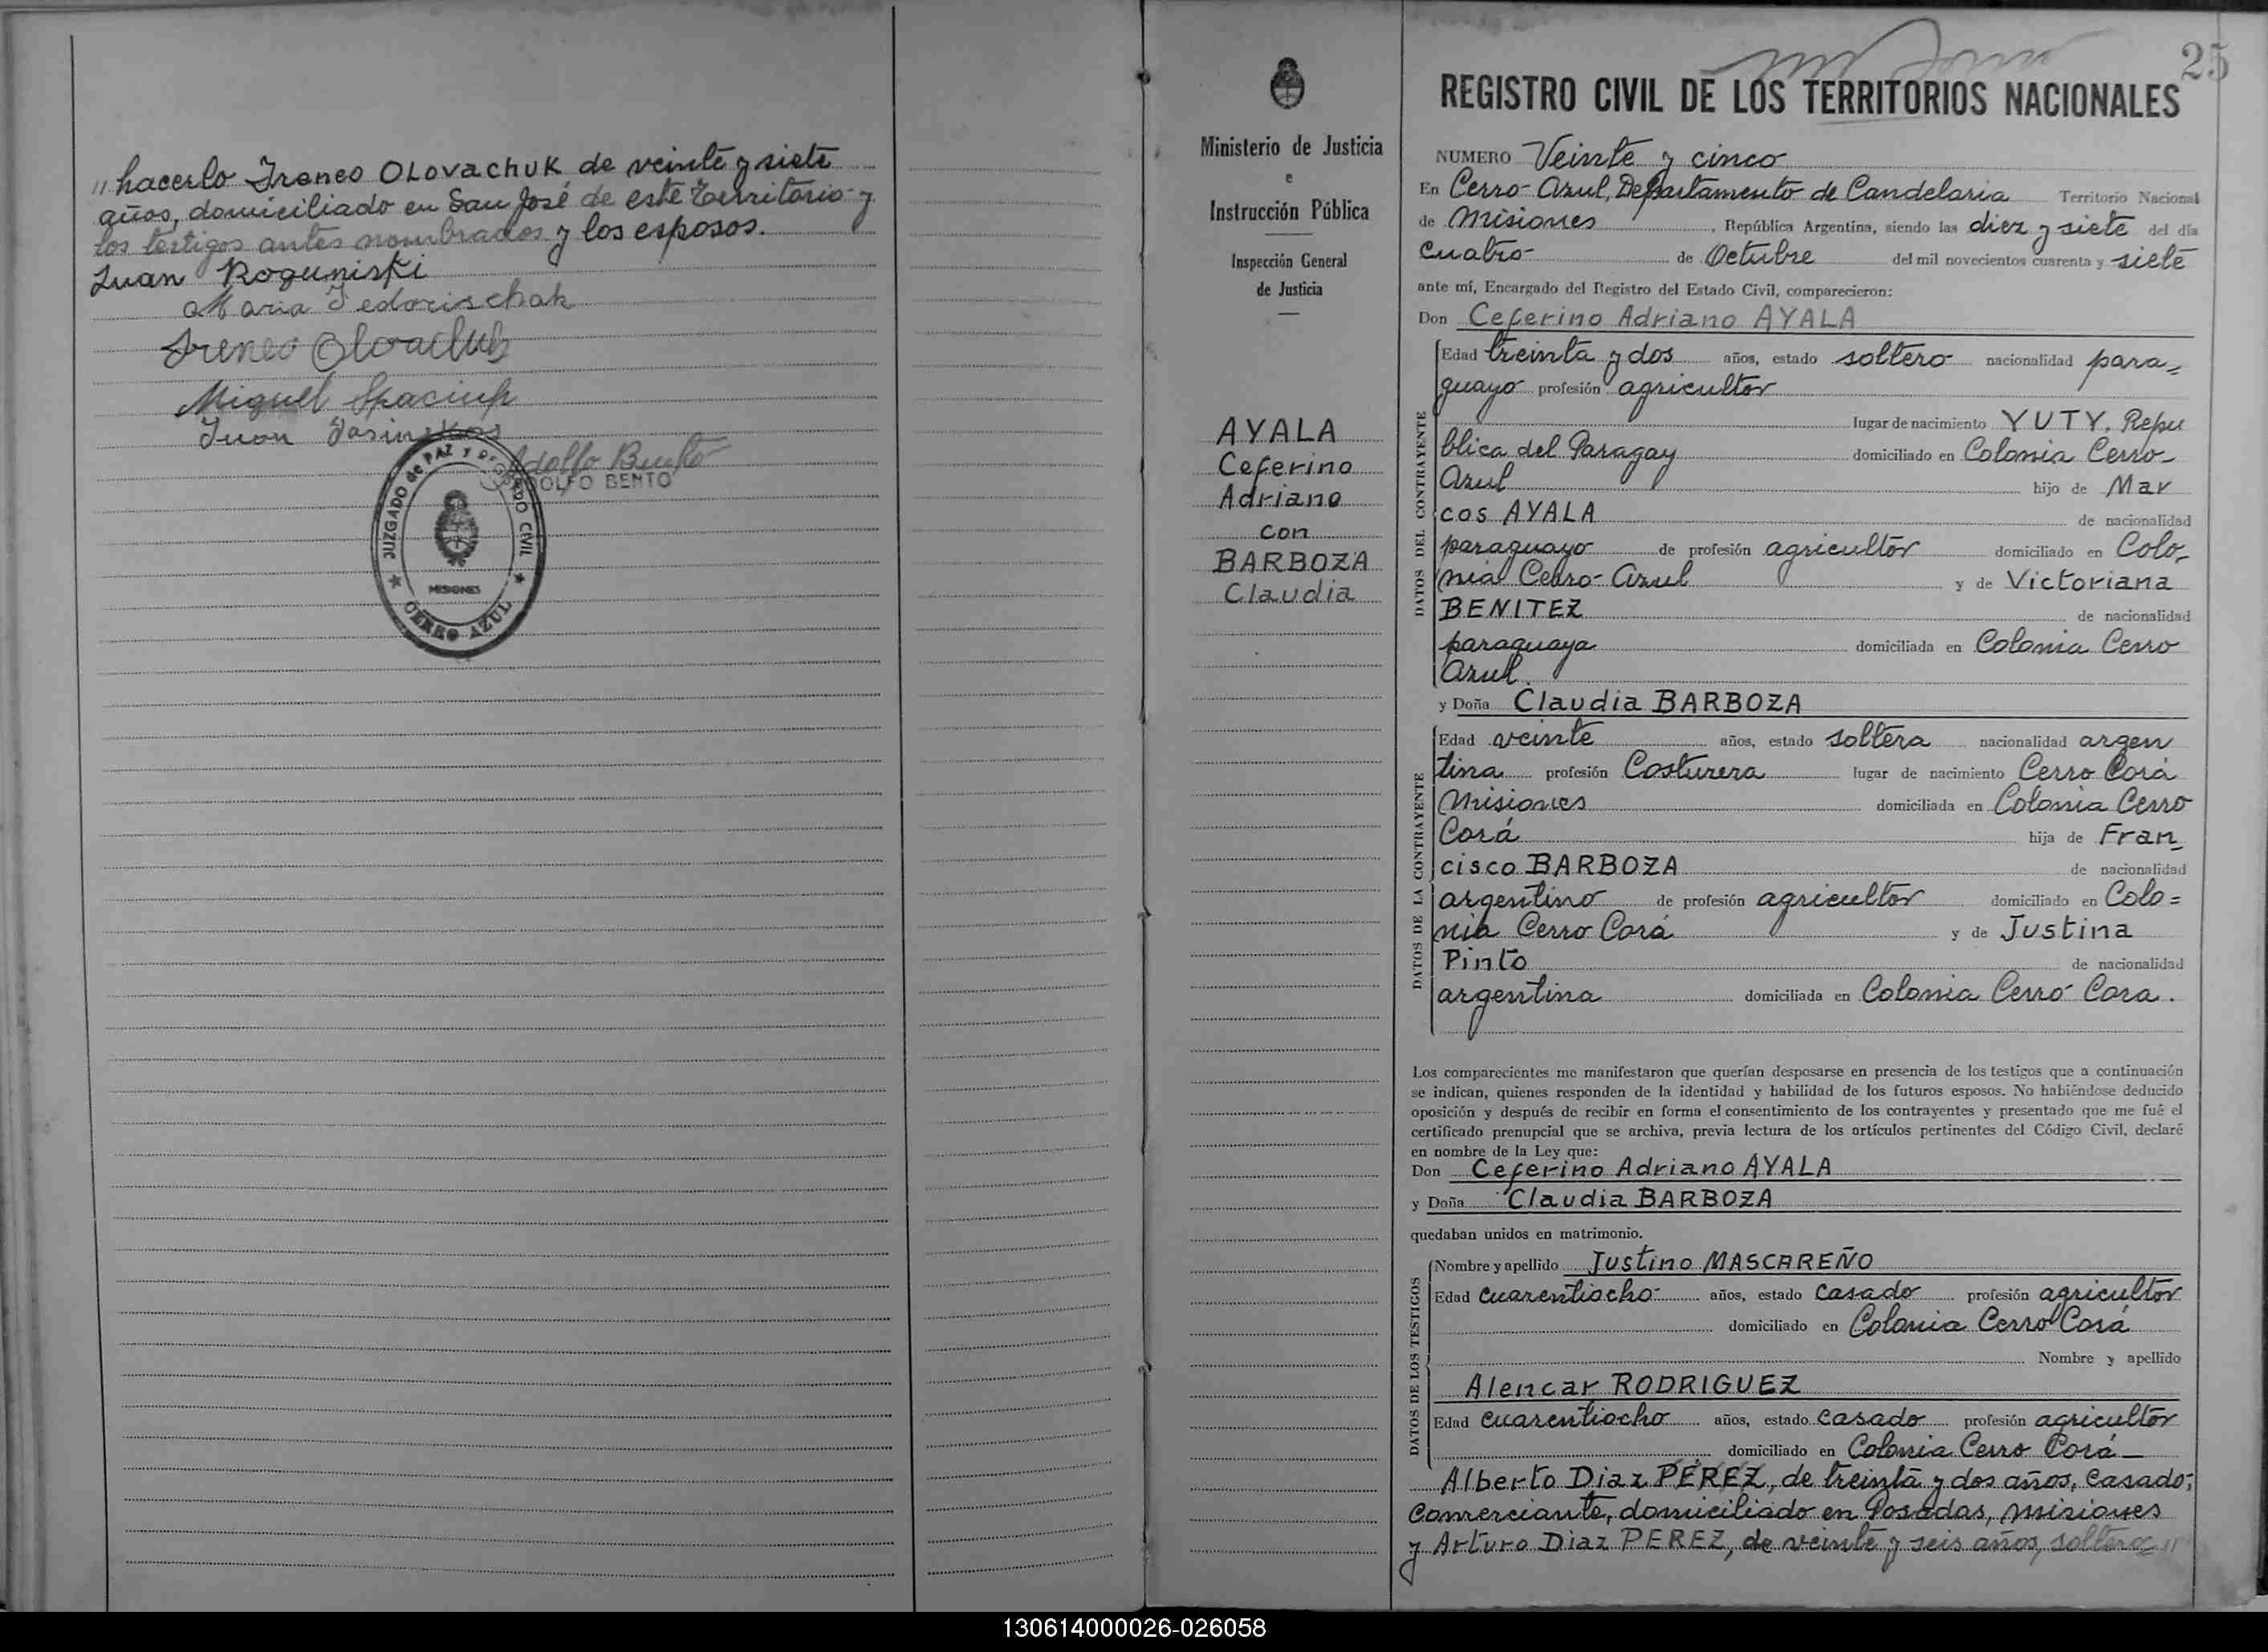 " hacerlo Ireneo OLOVACHUK de veinte y siete
años, domiciliado en San José de este Territorio y
los testigos antes nombrados y los esposos.
Juan Roguniski
Maria
Ireneo
Miguel
Juan
Adolfo Bento
ADOLFO BENTO
JUZGADO de PAZ y REGISTRO CIVIL
MISIONES
CERRO AZUL
Ministerio de Justicia
e
Instrucción Pública
Inspección General
de Justicia
AYALA
Ceferino
Adriano
con
BARBOZA
Claudia
25
REGISTRO CIVIL DE LOS TERRITORIOS NACIONALES
NUMERO Veinte y cinco
En Cerro-Azul, Departamento de Candelaria Territorio Nacional
de Misiones, República Argentina, siendo las diez y siete del día
cuatro- de Octubre del mil novecientos cuarenta y siete
ante mí, Encargado del Registro del Estado Civil, comparecieron:
Don Ceferino Adriano AYALA
DATOS DEL CONTRAYENTE
Edad treinta y dos años, estado soltero nacionalidad para=
guayo profesión agricultor
lugar de nacimiento YUTY. Repu
blica del Paragay domiciliado en Colonia Cerro-
Azul hijo de Mar
cos AYALA de nacionalidad
paraguayo de profesión agricultor domiciliado en Colo-
nia Cerro-Azul y de Victoriana
BENITEZ de nacionalidad
paraguaya domiciliada en Colonia Cerro
Azul.
y Doña Claudia BARBOZA
DATOS DE LA CONTRAYENTE
Edad veinte años, estado soltera nacionalidad argen
tina profesión Costurera lugar de nacimiento Cerro Corá
Misiones domiciliada en Colonia Cerro
Corá hija de Fran-
cisco BARBOZA de nacionalidad
argentino de profesión agricultor domiciliado en Colo=
nia Cerro Corá y de Justina
Pinto de nacionalidad
argentina domiciliada en Colonia Cerró Cora.
Los comparecientes me manifestaron que querían desposarse en presencia de los testigos que a continuación
se indican, quienes responden de la identidad y habilidad de los futuros esposos. No habiéndose deducido
oposición y después de recibir en forma el consentimiento de los contrayentes y presentado que me fué el
certificado prenupcial que se archiva, previa lectura de los artículos pertinentes del Código Civil, declaré
en nombre de la Ley que:
Don Ceferino Adriano AYALA
y Doña Claudia BARBOZA
quedaban unidos en matrimonio.
DATOS DE LOS TESTIGOS
Nombre y apellido Justino MASCAREÑO
Edad cuarentiocho- años, estado casado profesión agricultor
domiciliado en Colonia Cerro Corá
Nombre y apellido
Alencar RODRIGUEZ
Edad cuarentiocho años, estado casado profesión agricultor
domiciliado en Colonia Cerro Corá-
Alberto Diaz PÉREZ, de treinta y dos años, casado,
comerciante, domiciliado en Posadas, misiones
y Arturo Diaz PEREZ, de veinte y seis años, soltero= "
130614000026-026058